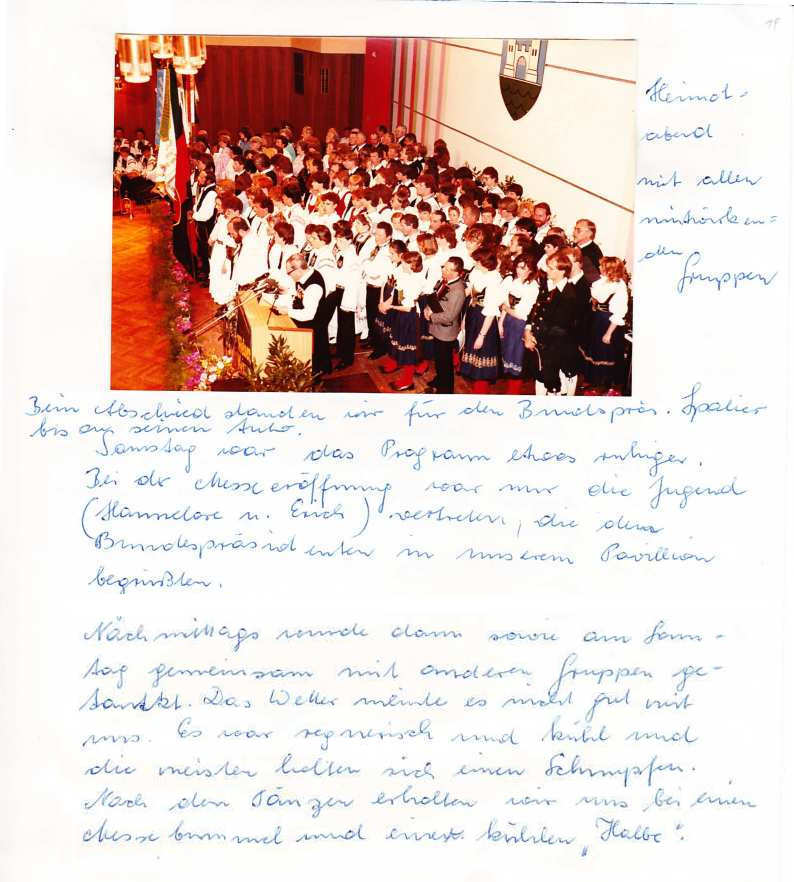 18
Heimat-
abend
mit allen
mitwirken=
den
Gruppen
Beim Abschied standen wir für den Bundespräs. Spalier
bis an seinen Auto.
Samstag war das Programm etwas ruhiger.
Bei der Messeeröffnung war nur die Jugend
(Hannelore u. Erich) vertreten, die den
Bundespräsidenten in unserem Pavillion
begrüßten.
Nachmittags wurde dann sowie am Sonn-
tag gemeinsam mit anderen Gruppen ge-
tanzt. Das Wetter meinte es nicht gut mit
uns. Es war regnerisch und kühl und
die meisten holten sich einen Schnupfen.
Nach den Tänzen erholten wir uns bei einen
Messebummel und einer kühlen „Halbe".